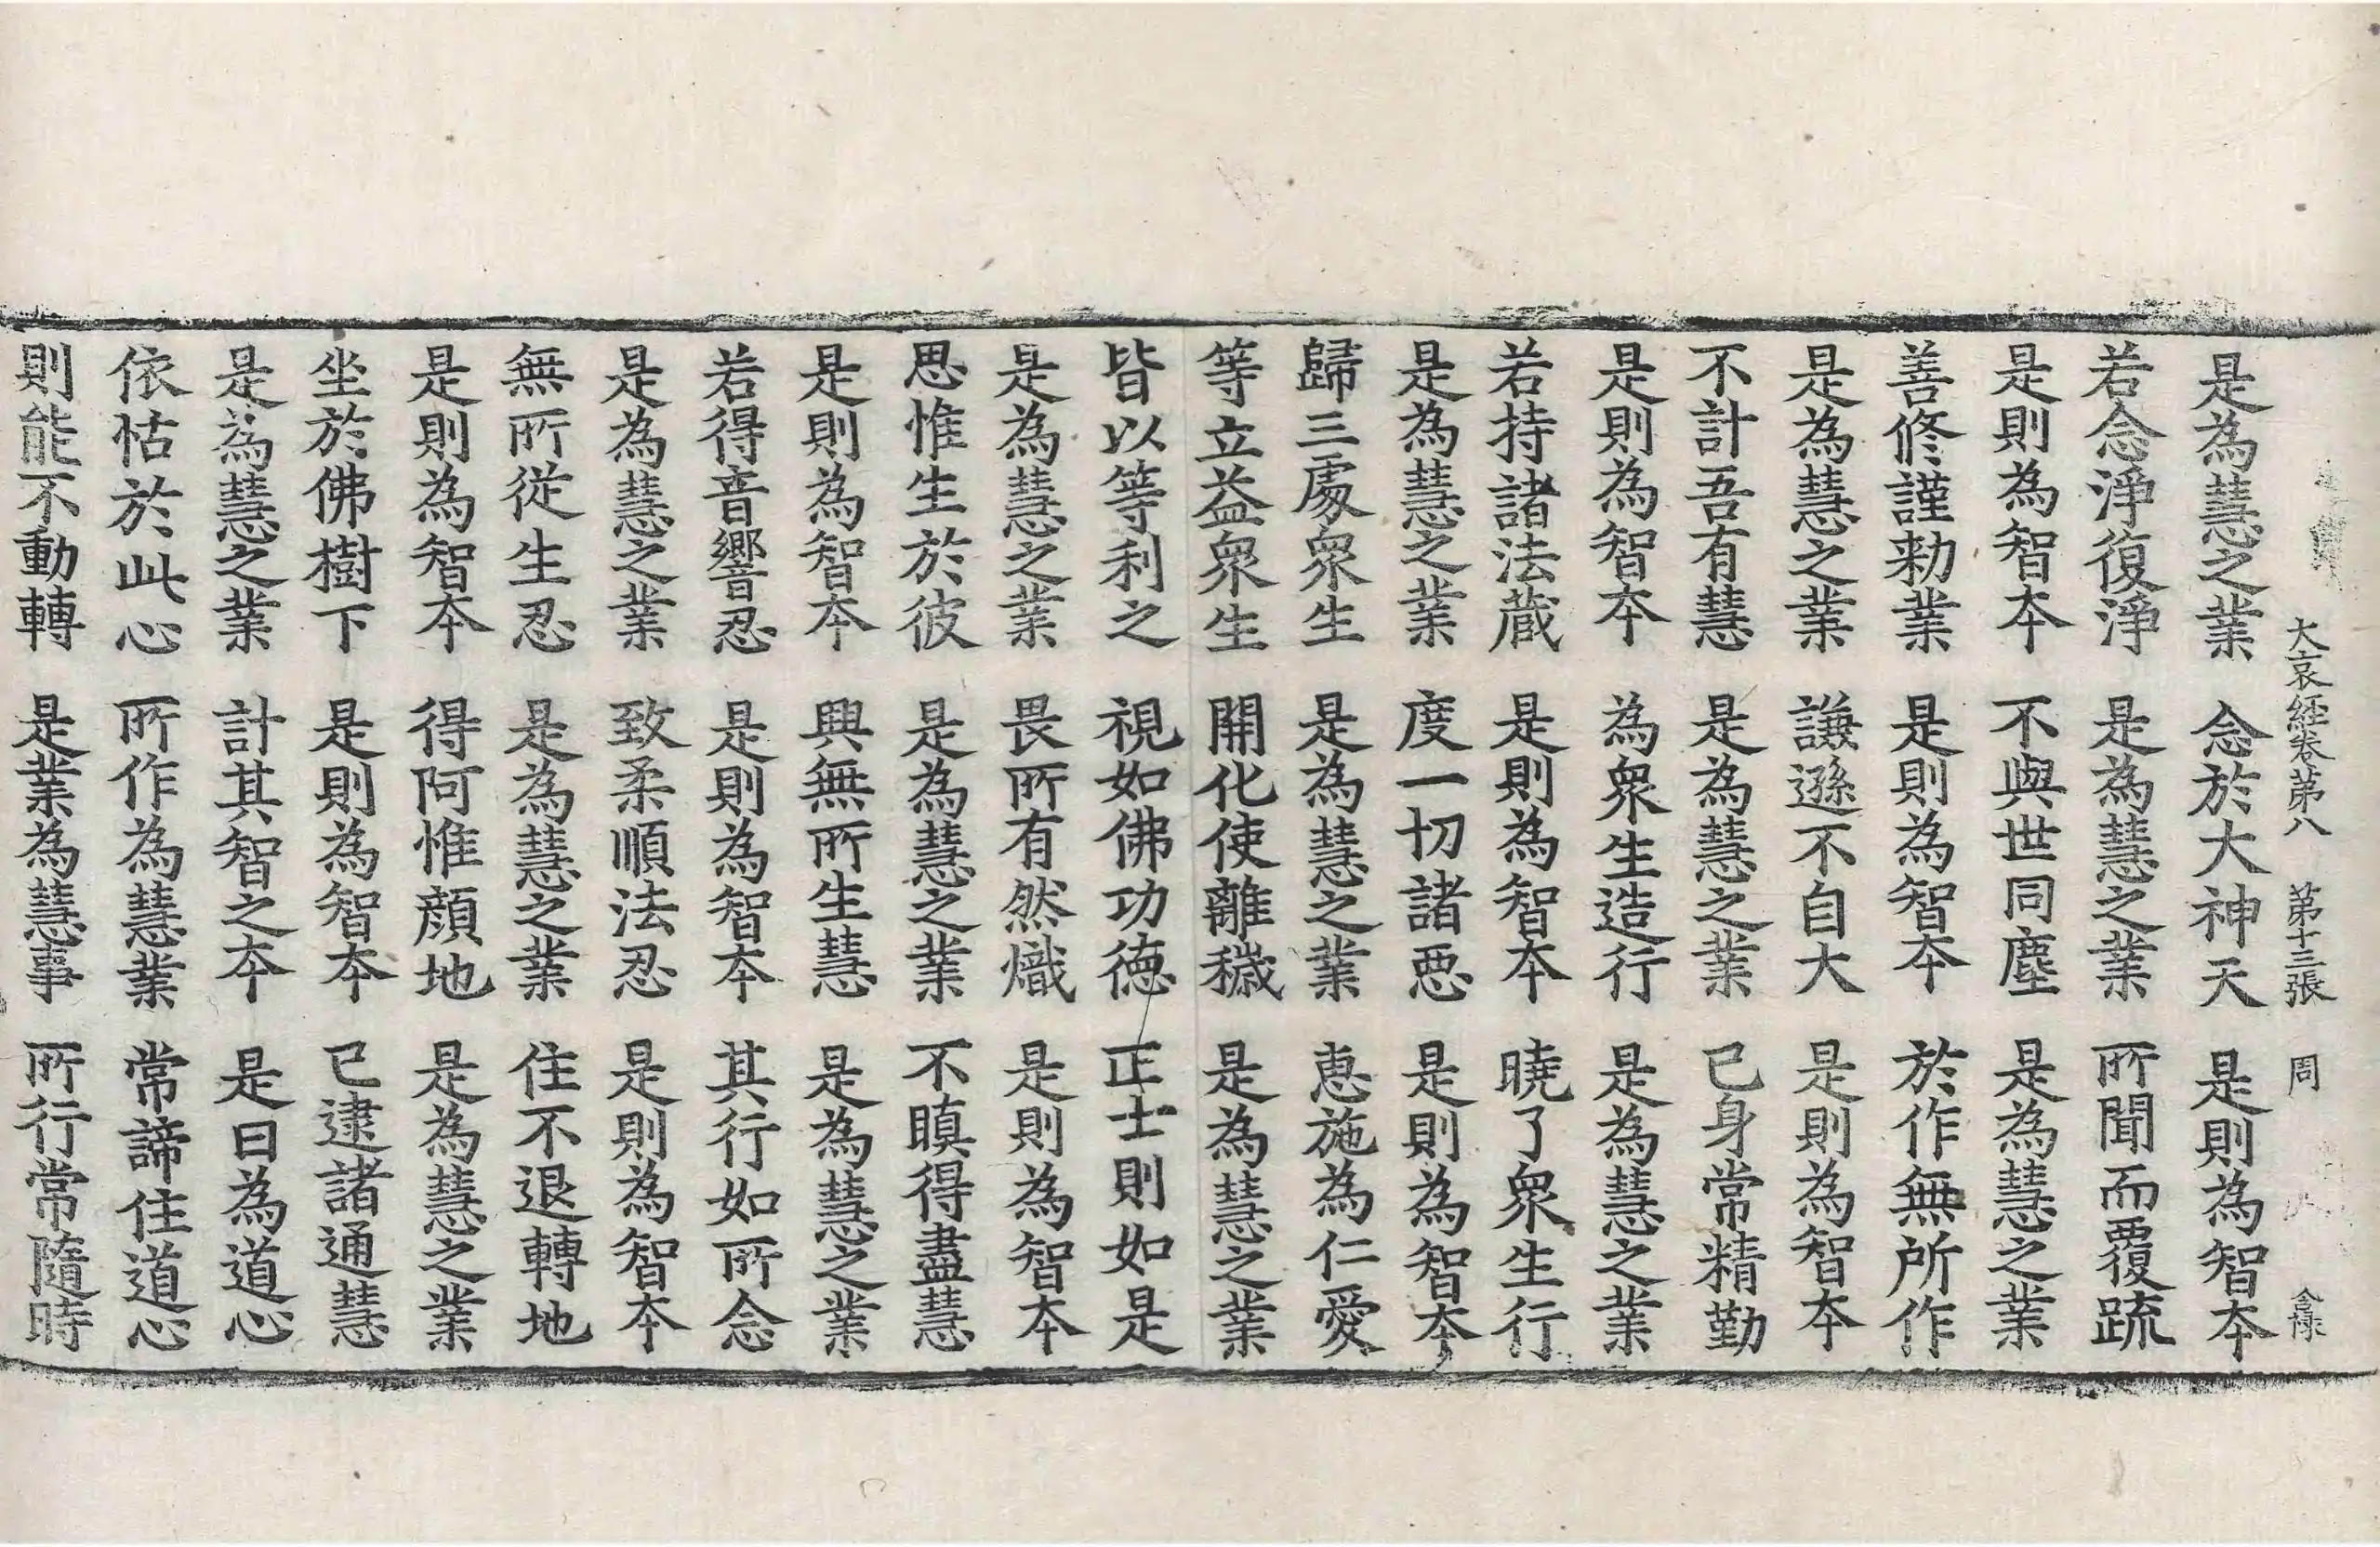 大哀経卷苐八　苐十三張　周
是為慧之業　念於大神天　是則為智夲
若念淨復淨　是為慧之業　所聞而覆疏
是則為智夲　不與世同塵　是為慧之業
善修謹勑業　是則為智夲　於作無所作
是為慧之業　謙遜不自大　是則為智夲
不計吾有慧　是為慧之業　已身常精勤
是則為智夲　為衆生造行　是為慧之業
若持諸法蔵　是則為智夲　曉了衆生行
是為慧之業　度一切諸惡　是則為智夲
歸三處衆生　是為慧之業　惠施為仁愛
等立益衆生　開化使離穢　是為慧之業
皆以等利之　視如佛功德　正士則如是
是為慧之業　畏所有然熾　是則為智夲
思惟生於彼　是為慧之業　不瞋得盡慧
是則為智夲　興無所生慧　是為慧之業
若得音響忍　是則為智夲　其行如所念
是為慧之業　致柔順法忍　是則為智夲
無所從生忍　是為慧之業　住不退轉地
是則為智夲　得阿惟顔地　是為慧之業
坐於佛樹下　是則為智夲　已逮諸通慧
是為慧之業　計其智之夲　是曰為道心
依怙於此心　所作為慧業　常諦住道心
則能不動轉　是業為慧事　所行常隨時